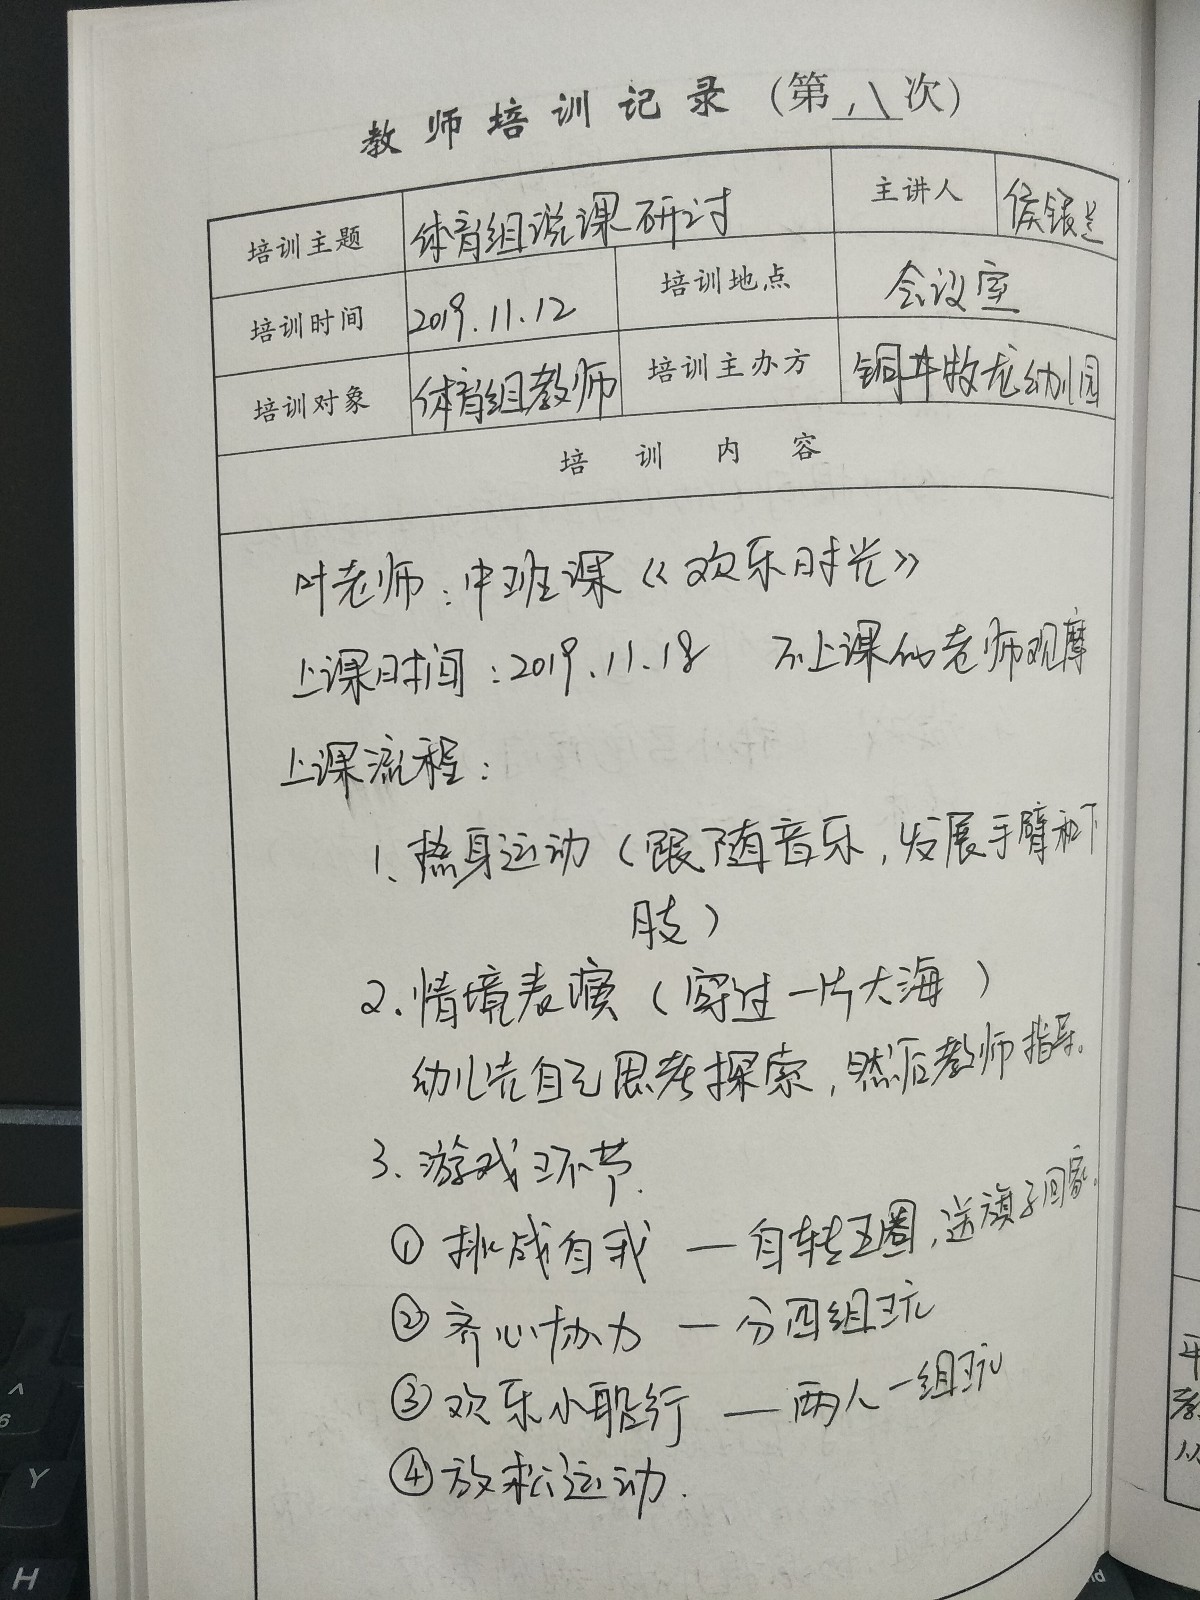 教师培训记录(第八次)
培训主题 体育组说课研讨 主讲人 侯银兰
培训时间 2019.11.12 培训地点 会议室
培训对象 体育组教师 培训主办方 铜井牧龙幼儿园
培训内容
叶老师:中班课《欢乐时光》
上课时间:2019.11.18 不上课的老师观摩
上课流程:
1、热身运动(跟随音乐,发展手臂和下
肢)
2、情境表演(穿过一片大海)
幼儿先自己思考探索,然后教师指导。
3、游戏环节.
①挑战自我—自转五圈,送旗子回家。
②齐心协力—分四组玩
③欢乐小船行—两人一组玩
④放松运动.